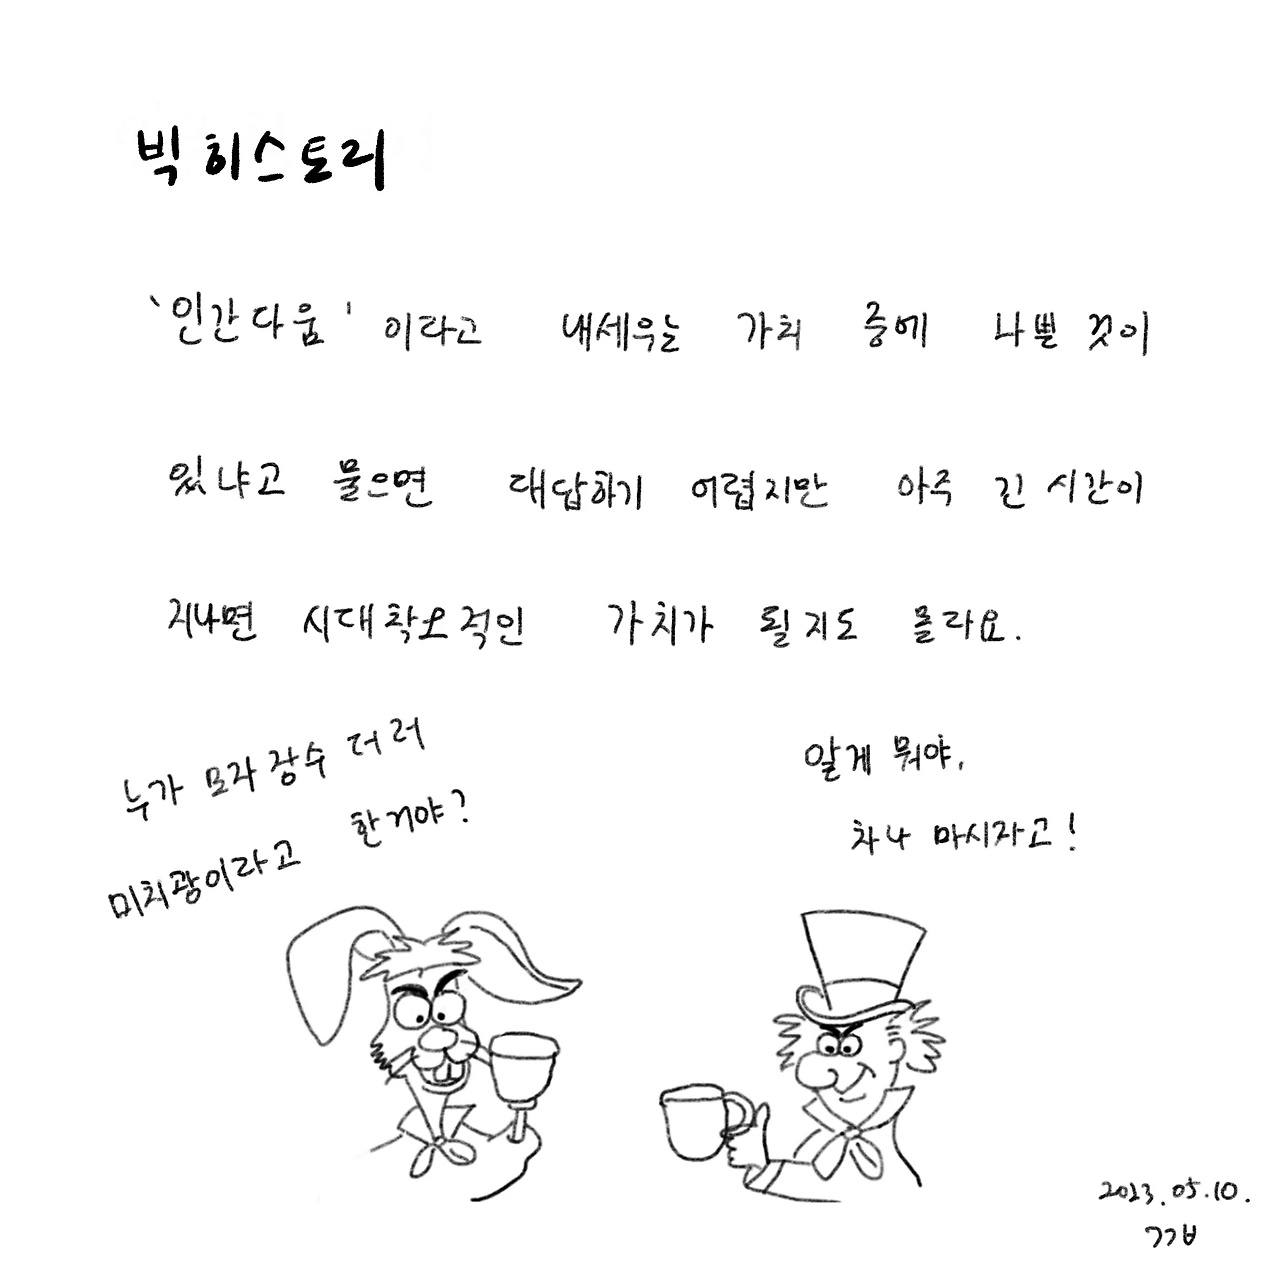 빅 히스토리
'인간다움'이라고 내세우는 가치 중에 나쁜 것이
있냐고 물으면 대답하기 어렵지만 아주 긴 시간이
지나면 시대착오적인 가치가 될지도 몰라요.
누가 모자 장수 더러
미치광이라고 한거야?
알게 뭐야,
차나 마시자고!
2023.05.10.
ㄱㄱㅂ